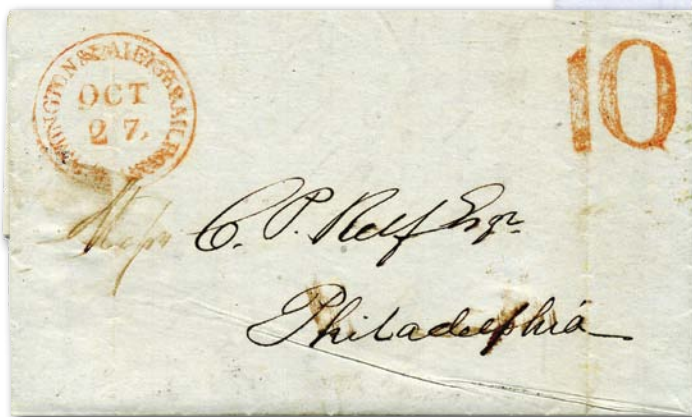 WILMINGTON & RALEIGH RAILROAD
OCT
27.
10
C. P. Relf Esqr.
Philadelphia